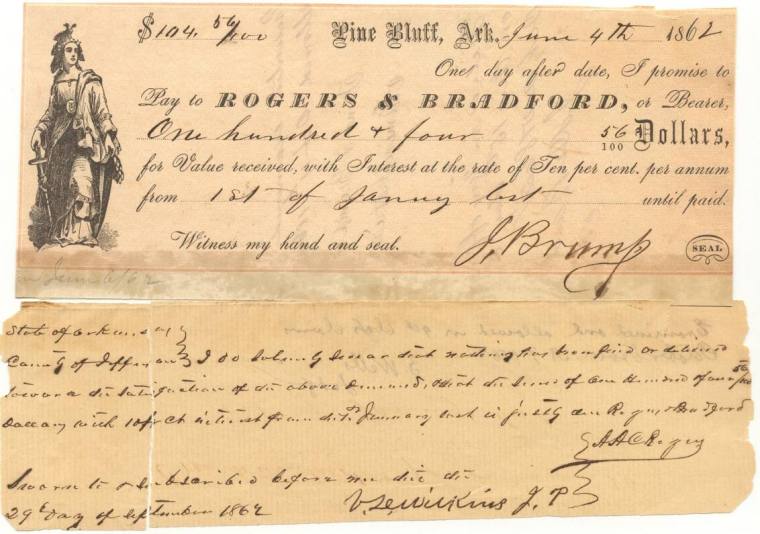 $104. 56/100 Pine Bluff, Ark. June 4th 1862
One day after date, I promise to
Pay to ROGERS & BRADFORD, or Bearer,
One hundred & four 56/100 Dollars,
for Value received, with Interest at the rate of Ten per cent. per annum
from 1st of Janny last until paid.
Witness my hand and seal. J. Brump SEAL
June 6/62
State of Arkansas
County of Jefferson I do solemnly swear that nothing has been paid or delivered
toward the satisfaction of the above demand, that the sum of One Hundred four 56/100
Dollars with 10 pr ct interest from the 1st January last is justly due Rogers & Bradford
A A C Rogers
Sworn to & subscribed before me this the
29th day of September 1862 Wilkins J. P.